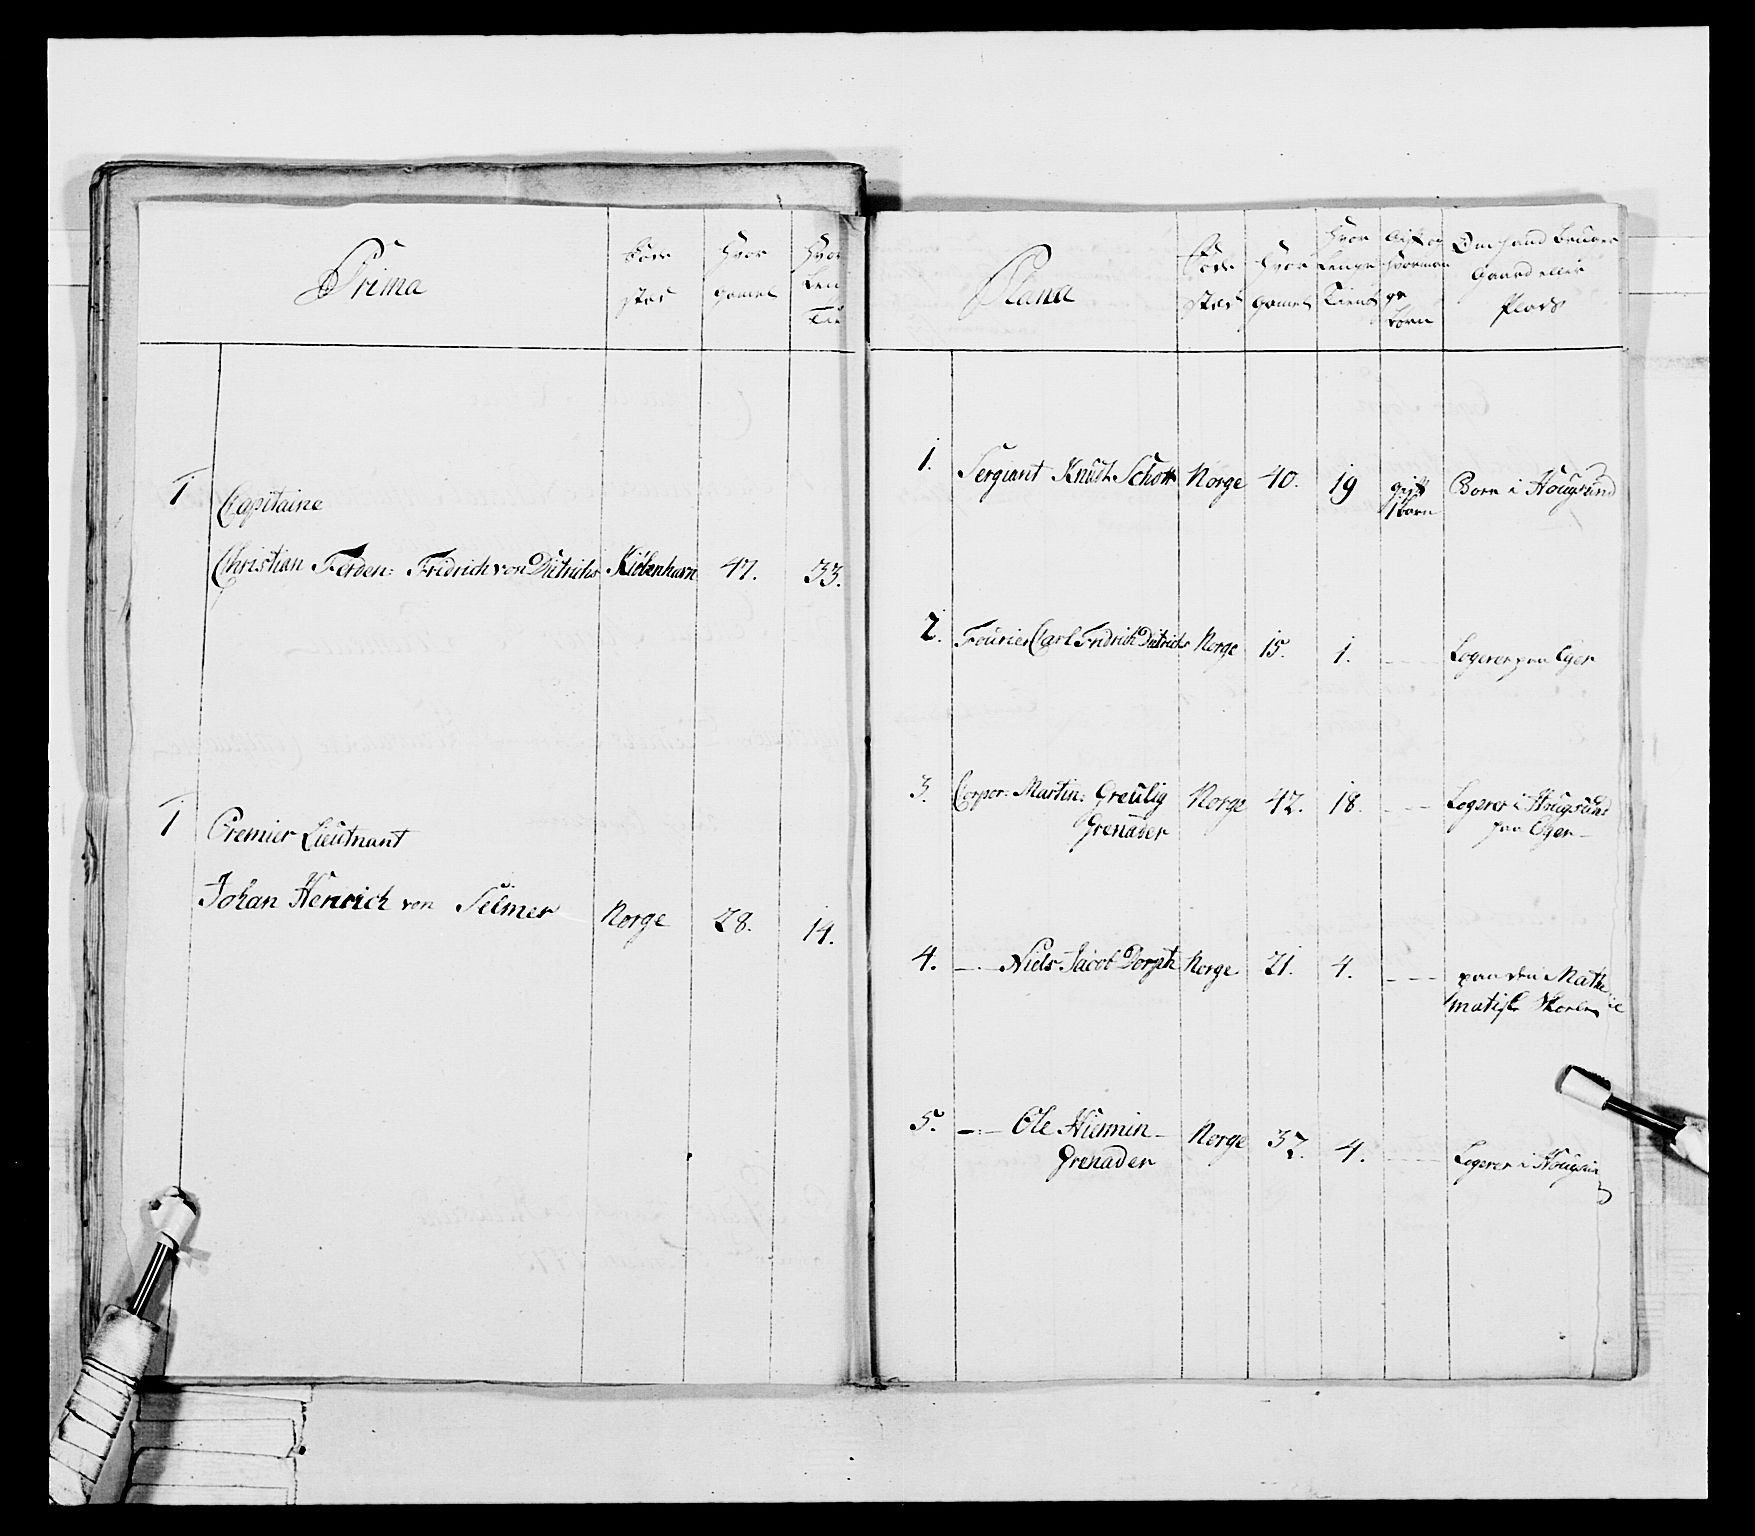 Prima
Føde
sted
Hvor
gamel
Hvor
Len
Tie
1
Capitaine
Christian Ferden: Fridrich von Ditrichs Kiøbenhavn 47. 33.
1
Premier Lieutnant
Johan Henrich von Selmer Norge 28. 14.
Plana
Føde
sted
Hvor
gamel
Hvor
Lenge
Tient
Gift og
hvorman
ge
Børn
Om hand bruger
Gaard eller
Plads
1. Sergiant Knud Schøtt Norge 40. 19 gift Boer i Hougsund
1 barn
2. Fourier Carl Fridrich Ditrichs Norge 15. 1. — — Logerer paa Eger
3. Corpor: Martin: Greulig Norge 42. 18. — — Logerer i Hougsund
Grenader paa Eger —
4. — Niels Jacob Dorph Norge 21. 4. — — paa den Mathe
matiske Skoele
5. — Ole Hiermin — Norge 32. 4. — — Logerer i Hougsund
Grenader